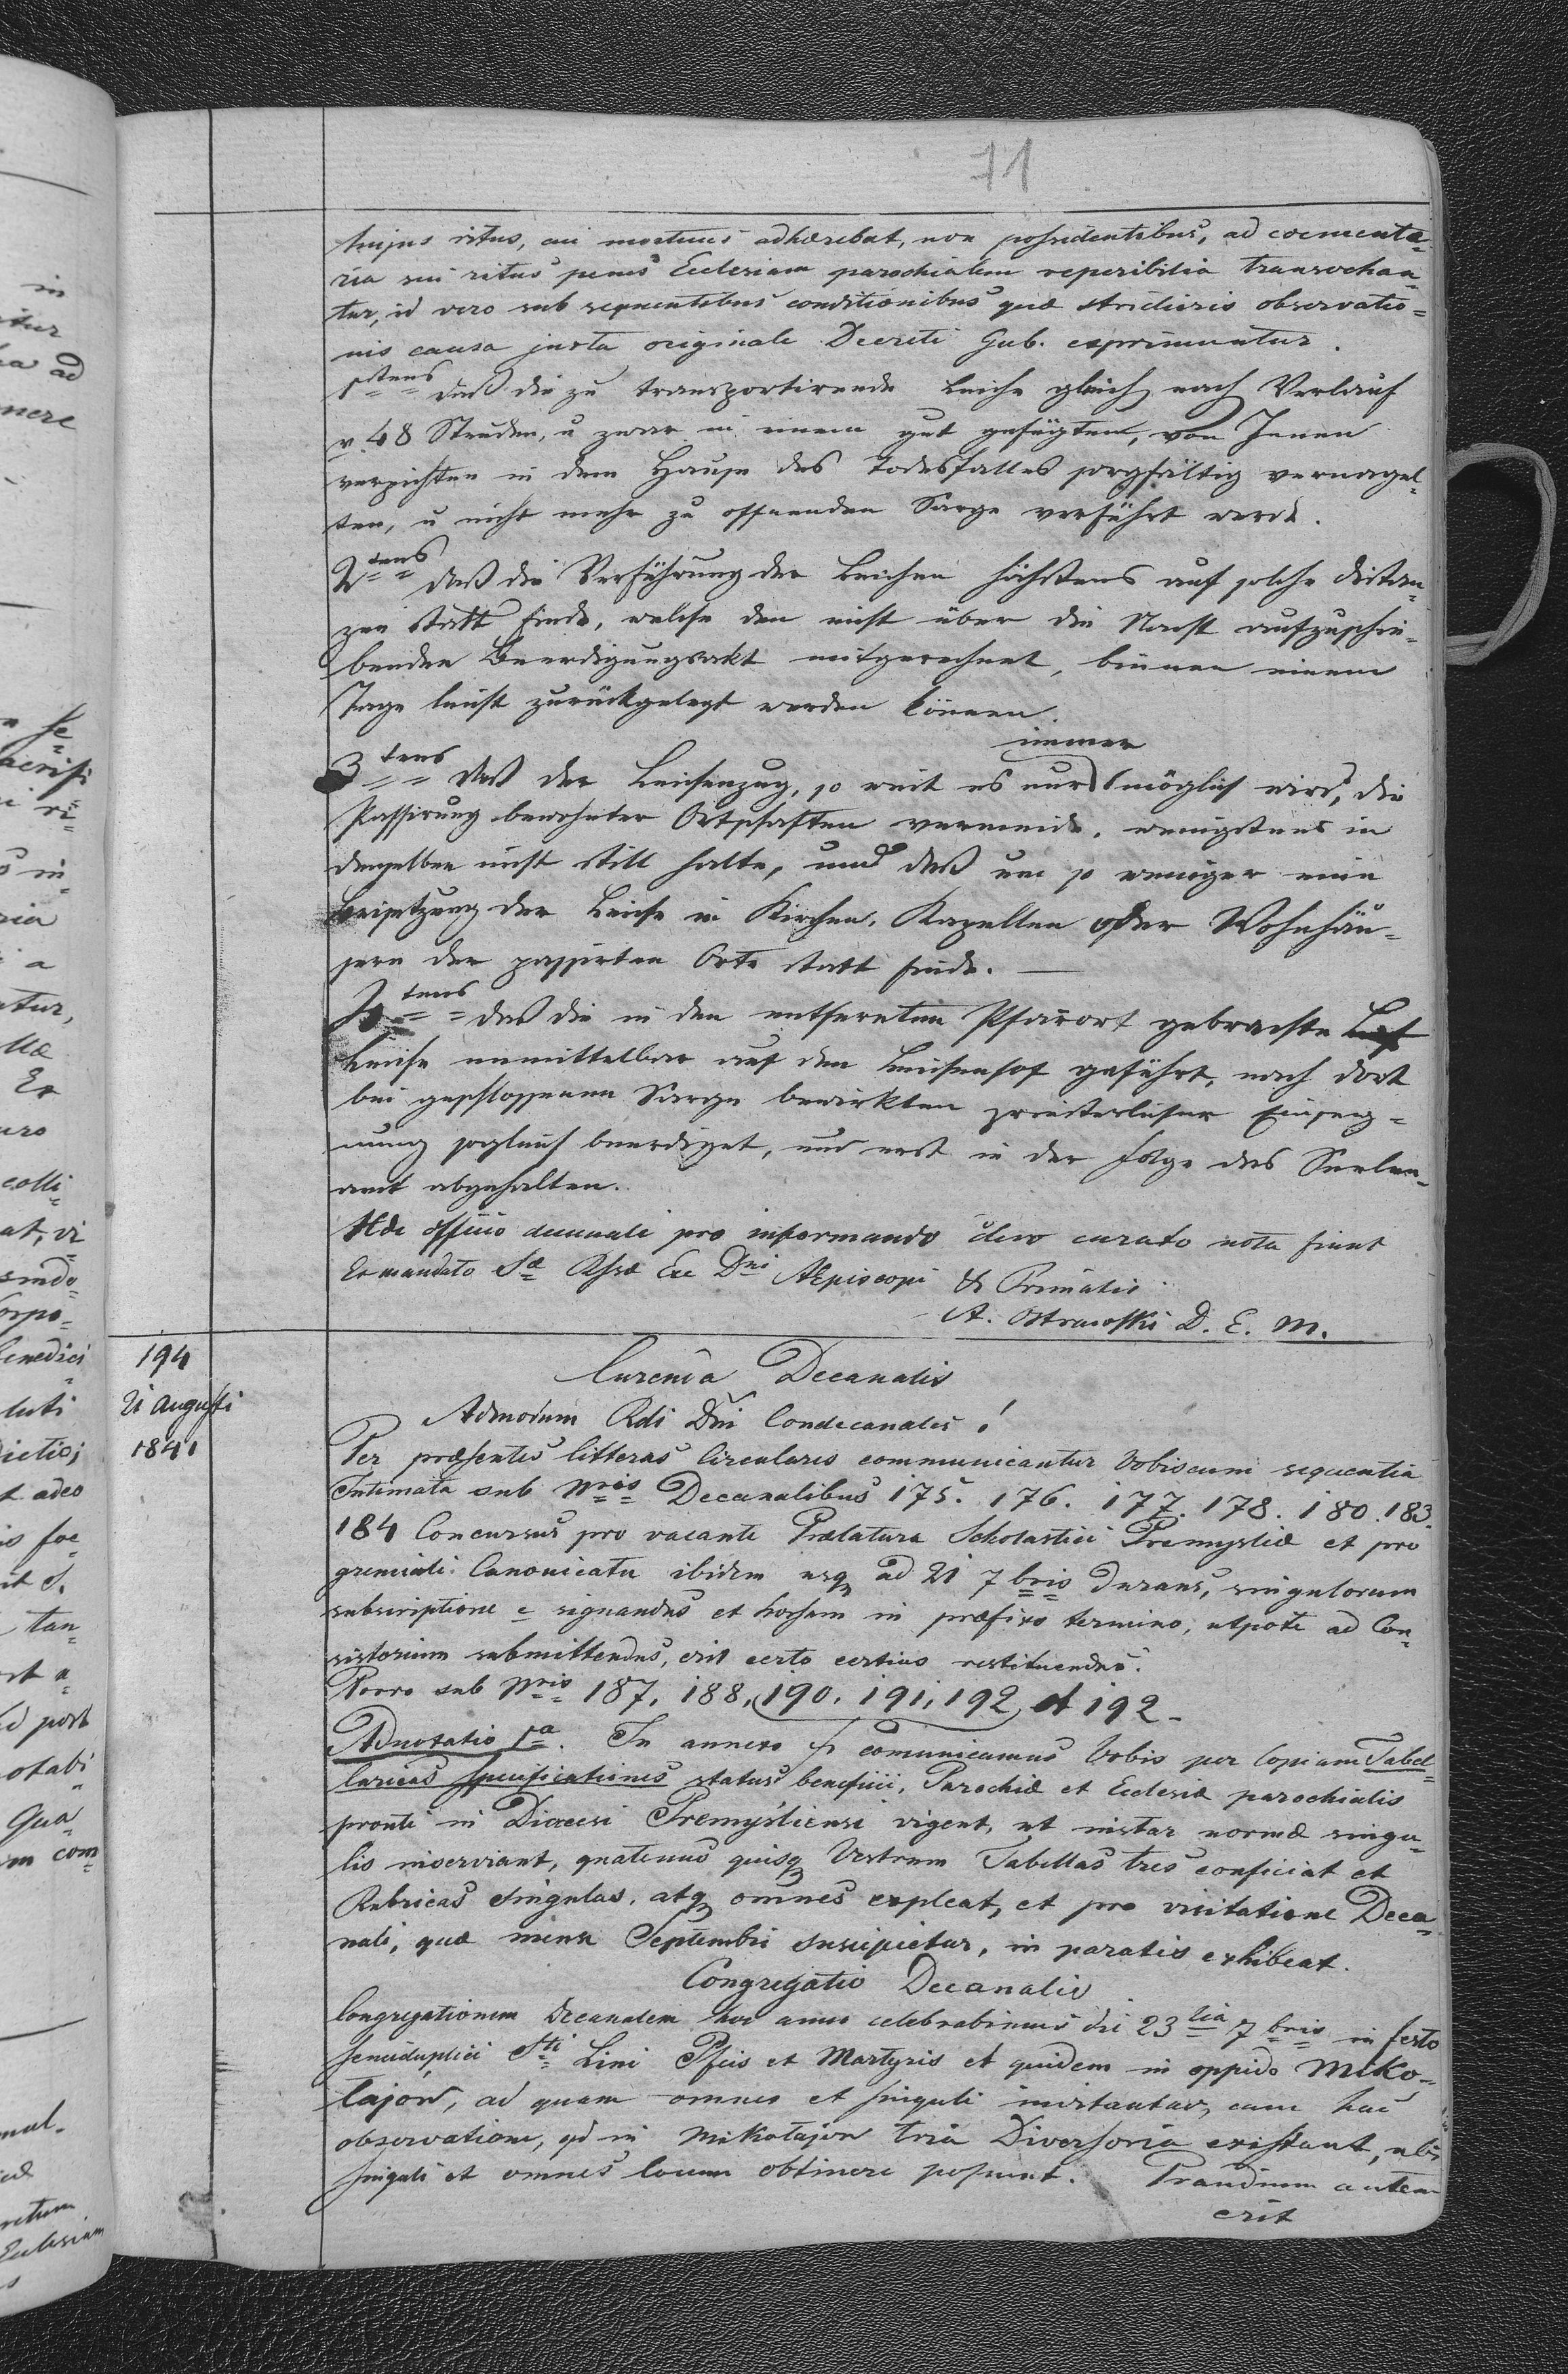 71
hujus ritus, cui mortuus adhærebat, non possidentibus, ad coementa=
ria sui ritus penes Ecclesiam parochialem reperibilia transvehan=
tur, id vero sub sequentibus conditionibus quæ strictioris observatio=
nis causa juxta originale Decreti Gub. exprimuntur.
1stens daß die zu transportirende Leiche gleich nach Verlauf
v. 48 Stunden, u zwar in einem gut gefügten, von Innen
verpichten in dem Hause des Todesfalles sorgfältig vernagel=
ten, u nicht mehr zu offnenden Sarge verführt werde.
2tens daß die Verführung der Leichen höchstens auf solche distan=
zen statt finde, welche den nicht über die Nacht aufzuschie=
benden Beerdigungsakt mitgerechnet, binnen einem
Tage leicht zurückgelegt werden können.
immer
3tens daß der Leichenzug, so weit es nur möglich wird, die
Passirung bewohnter Ortschaften vermeide, wenigstens in
denselben nicht still halte, und daß um so weniger eine
Beisetzung der Leiche in Kirchen, Kapellen oder Wohnhäu=
sern der passirten Orte statt finde. —
4tens daß die in den entfernten Pfarort gebrachte
Leiche unmittelbar auf den Leichenhof geführt, nach dort
bei geschlossenem Sarge bewirkten priesterlicher Einseg=
nung sogleich beerdiget, und erst in der Folge das Seelen=
amt abgehalten.
officio decanali pro informando clero curato nota fiunt
Ex mandato Dni AEpiscopi & Primatis
A. Ostrawski D. E. M.
194
21 Augusti
1841
Currenda Decanalis
Admodum Rdi Dni Condecanales!
Per præsentes litteras Circulares communicantur Vobiscum sequentia
Intimata sub Nris Decanalibus 175. 176. 177. 178. 180. 183.
184 Concursus pro vacante Prælatura Scholastici Premysliæ et pro
gremiali Canonicatu ibidem usq ad 21 7bris durans, singulorum
subscriptione e signandus et horsum in præfixo termino, utpote ad Con=
sistorium submittendus, erit certo certius restituendus.
Porro sub Nris 187, 188, 190, 191, 192 et 192.
Adnotatio 1a. In annexo comunicamus Vobis per Copiam Tabel=
laricas specificationes status beneficii, Parochiæ et Ecclesiæ parochialis
prouti in Dioecesi Premysliensi vigent, ut instar normæ singu=
lis inserviant, quatenus quisq Vestrum Tabellas tres conficiat et
Rubricas singulas, atq omnes expleat, et pro visitatione Deca=
nali, quæ mense Septembri suscipietur, in paratis exhibeat.
Congregatio Decanalis
Congregationem Decanalem hoc anno celebrabimus die 23tia 7bris in festo
semiduplici Sti Lini Pfcis et Martyris et quidem in oppido Miko=
łajow, ad quam omnes et singuli invitantur, cum hac
observatione, qd in Mikołajow tria Diversoria existant, ubi
singuli et omnes locum obtinere possunt. Prandium autem
erit